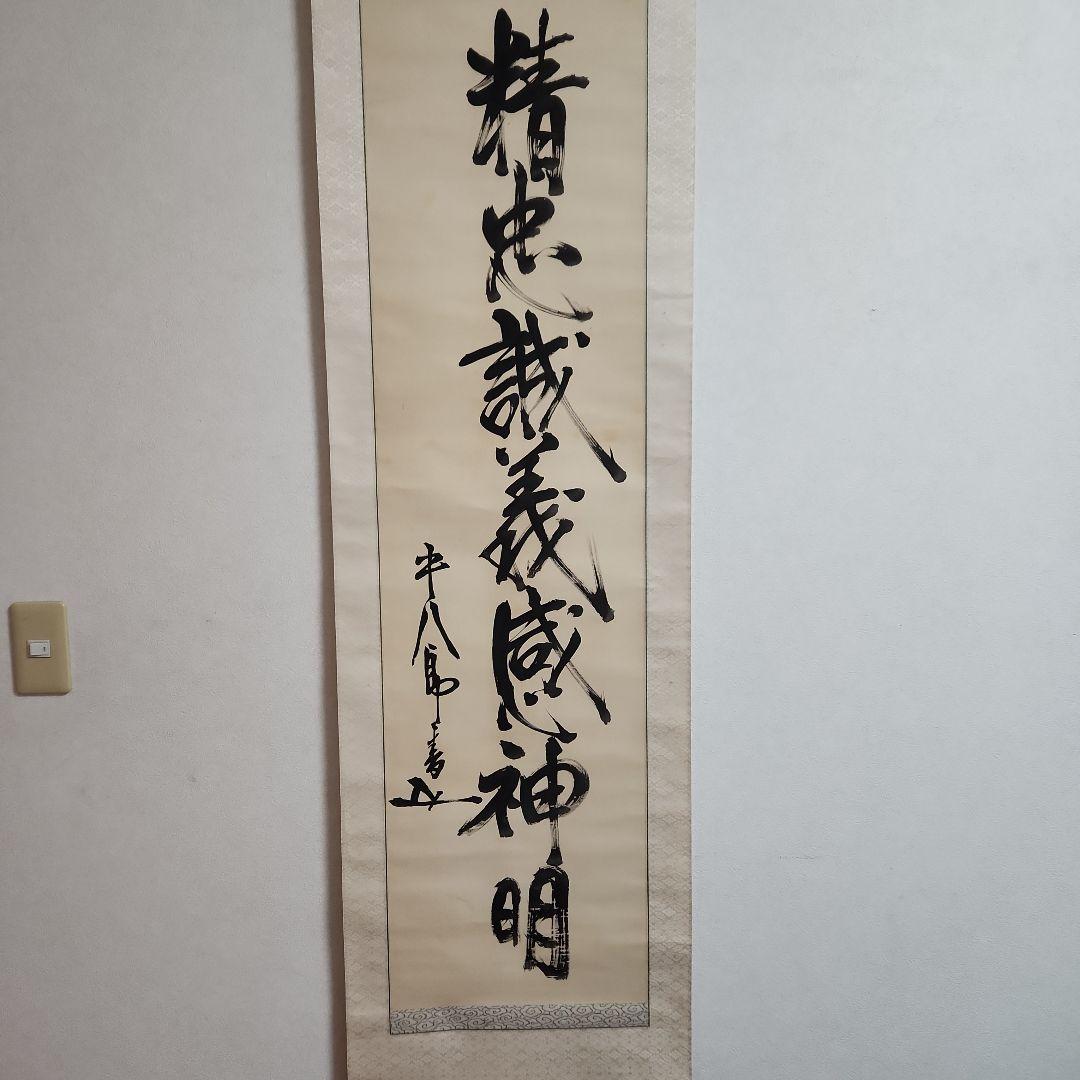 精忠誠義感神明
平八郎書